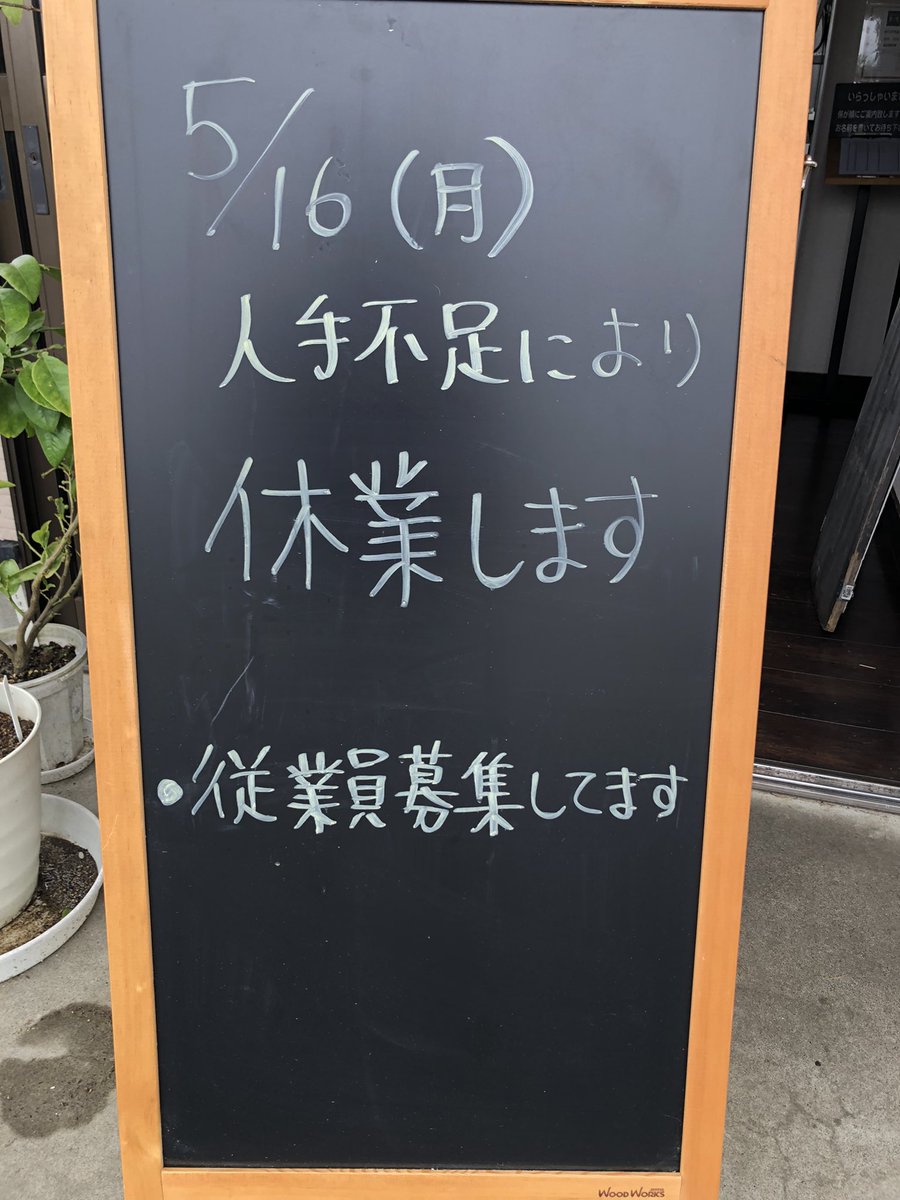 5/16(月)
人手不足により
休業します
・従業員募集してます
いらっしゃいませ
係が順にご案内致します
お名前を書いてお待ち下
WOOD WORKS